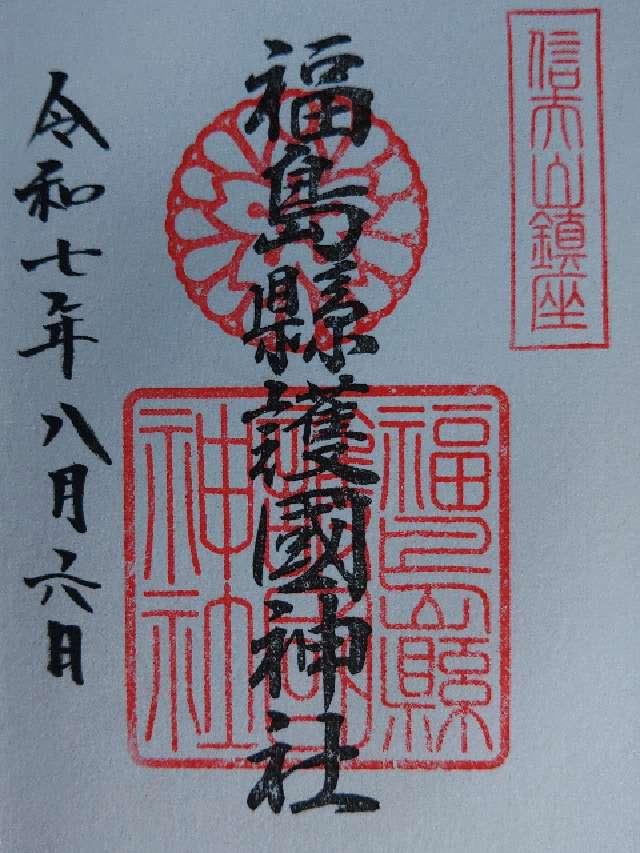 信夫山鎮座
福島縣護國神社
福島縣護國神社
令和七年八月六日